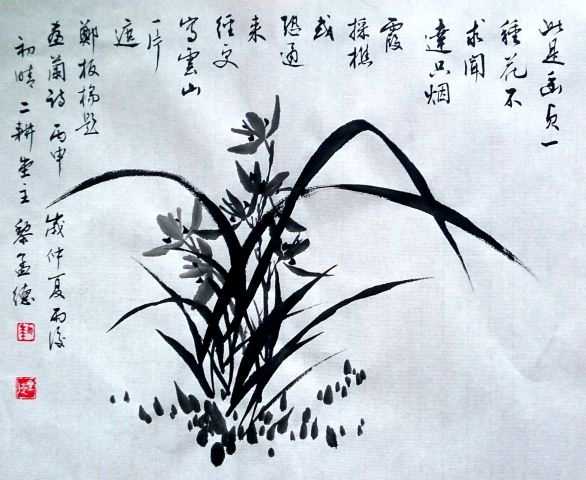 此是幽貞一
種花不
求聞
達只烟
霞
採樵
或
恐通
来
徑更
寫雲山
一片
遮
鄭板橋題
畫蘭詩 丙申 歲仲夏雨後
初晴 二耕堂主 黎孟德